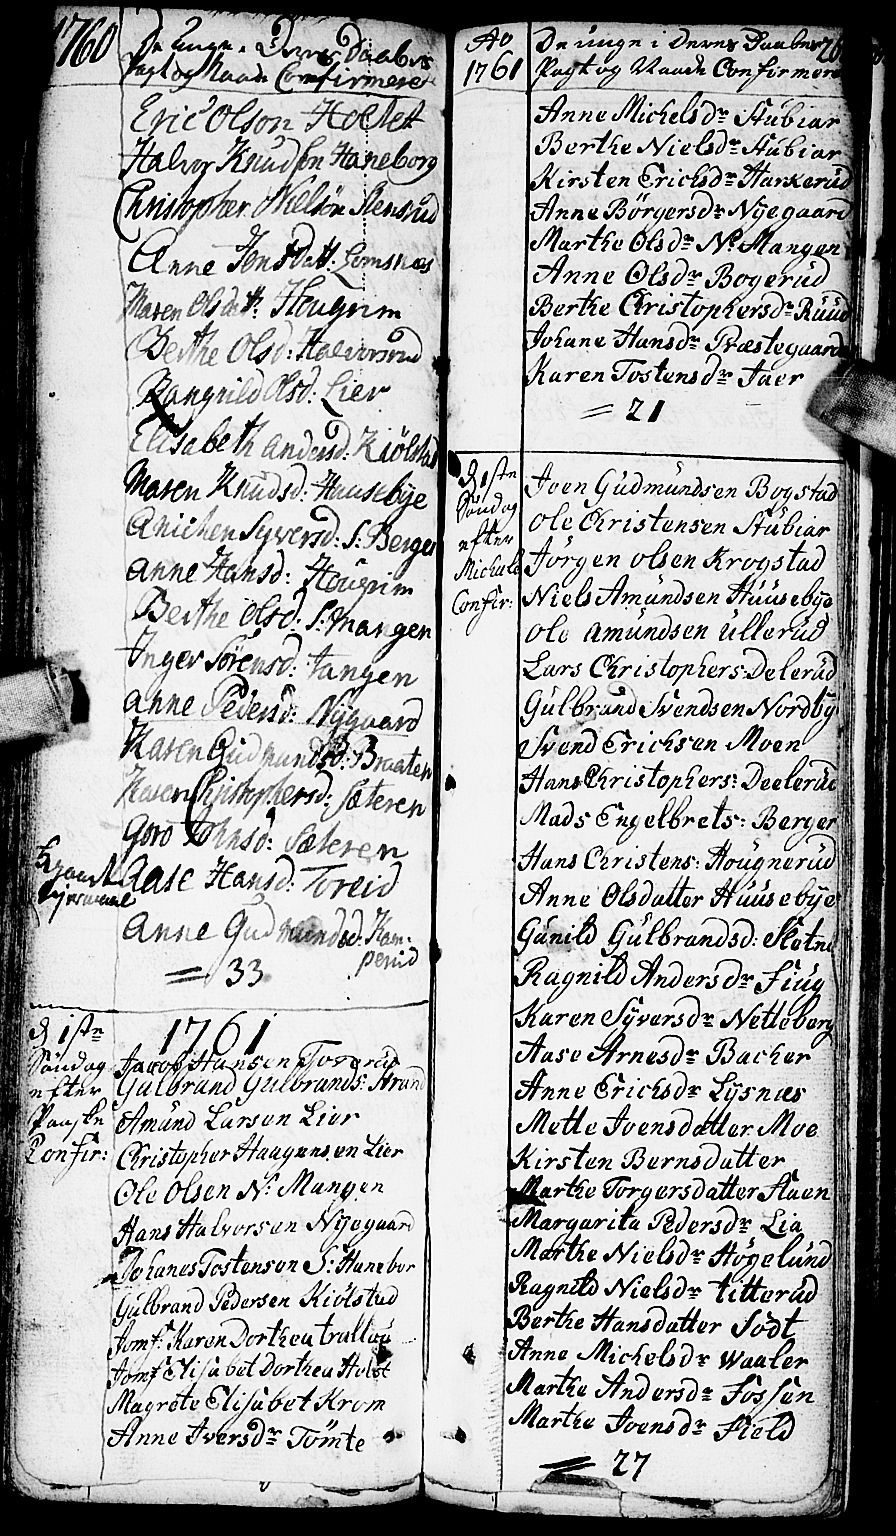 1760
De unge i Deres Daabes
Pagt og Naade Confirmeret
Eric Olson Holtet
Halvor Knudsøn Haneborg
Christopher Nielsøn Stensrud
Anne Jonsdatt: Lomsnæs
Maren Olsdatt: Hougrim
Berthe Olsd: Halvorsrud
Rangnild Olsd: Lier
Elisabeth andersd: Kiölstad
Maren Knudsd: Huusebye
Anichen Syversd: S: Berger
anne Hansd: Hougrim
Berthe Olsd: S: mangen
Inger Sörensd: tangen
anne Pedersd: Nÿgaard
Karen Gudmundsd: Braaten
Karen Christophersd: Sæteren
Goro Johnsd: Sæteren
Aase Hansd: Toreid
Anne Gudmundsd: Kam-
perud
= 33
1761
d. 1ste
Søndag
efter
Paaske
Confir:
Jacob Hansen Toverud
Gulbrand Gulbrands: Strand
Amund Larsen Lier
Christopher Haagensen Lier
Ole Olsen N: Mangen
Hans Halvorsen Nÿegaard
Johanes Tostensen S: Hanebor
Gulbrand Pedersen Kiölstad
Jomf: Karen Dorthea
Jomf Elisabet Dorthea Holst
Magrete Elisabet Krom
Anne Iversdr Tömte
Ao
1761
De unge i Deres Daabes
Pagt og Naade Confirmere
Anne Michelsdr Stubiar
Berthe Nielsdr Stubiar
Kirsten Erichsdr Harkerud
Anne Börgersdr Nÿegaard
Marthe Olsdr No Mangen
Anne Olsdr Bogerud
Berthe Christophersdr Ruud
Johane Hansdr Præstegaard
Karen Tostensdr Jaer
= 21
d. 1ste
Söndag
efter
Michels
Confir:
Joen Gudmundsen Bogstad
Ole Christensen Stubiar
Jörgen olsen Krogstad
Niels Amundsen Huusebye
Ole amundsen ullerud
Lars Christophers: Delerud
Gulbrand Svendsen Nordby
Svend Erichsen Moen
Hans Christophers: Deelerud
Mads Engelbrets: Berger
Hans Christens: Hougnerud
Anne Olsdatter Huusebye
Gunild Gulbrandsd: Slotne
Ragnild Andersdr Fiug
Karen Syversdr Netteberg
Aase Arnesdr Backer
Anne Erichsdr Lysnæs
Mette Joensdatter Moe
Kirsten Bernsdatter
Marthe Torgersdatter Haen
Margarita Pedersdr Lia
Marthe Nielsdr Högelund
Ragnild Nielsdr titterud
Berthe Hansdatter Födt
Anne Michelsdr Waaler
Marthe Andersdr Fossen
Marthe Joensdr Field
= 27